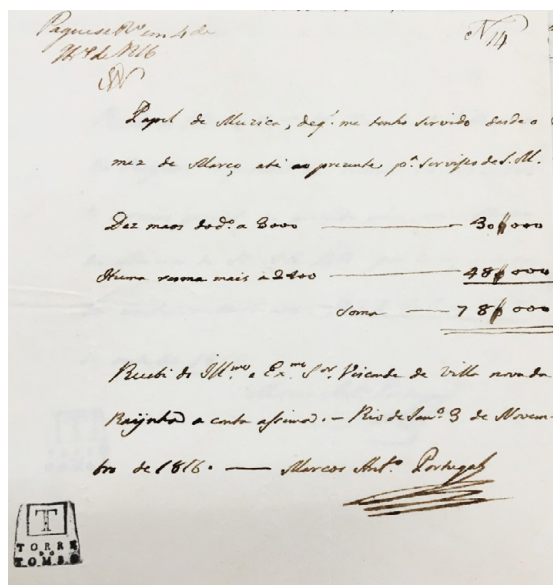 Paguese Rs. em 4 de
9br.o de 1816
N 14
Papel de Muzica, deq.' me tenho servido desde o
mez de Março até ao prezente p.a serviço de S. M.
Dez maos do d.o a 3000 — 30$000
Huma resma mais a 2400 — 48$000
Soma — 78$000
Recebi do Ill.mo e Ex.mo S.or Visconde de Villa nova da
Raijnha a conta assima. — Rio de Jan.o 3 de Novem-
bro de 1816. — Marcos Ant.o Portugal
TORRE
DO
TOMBO